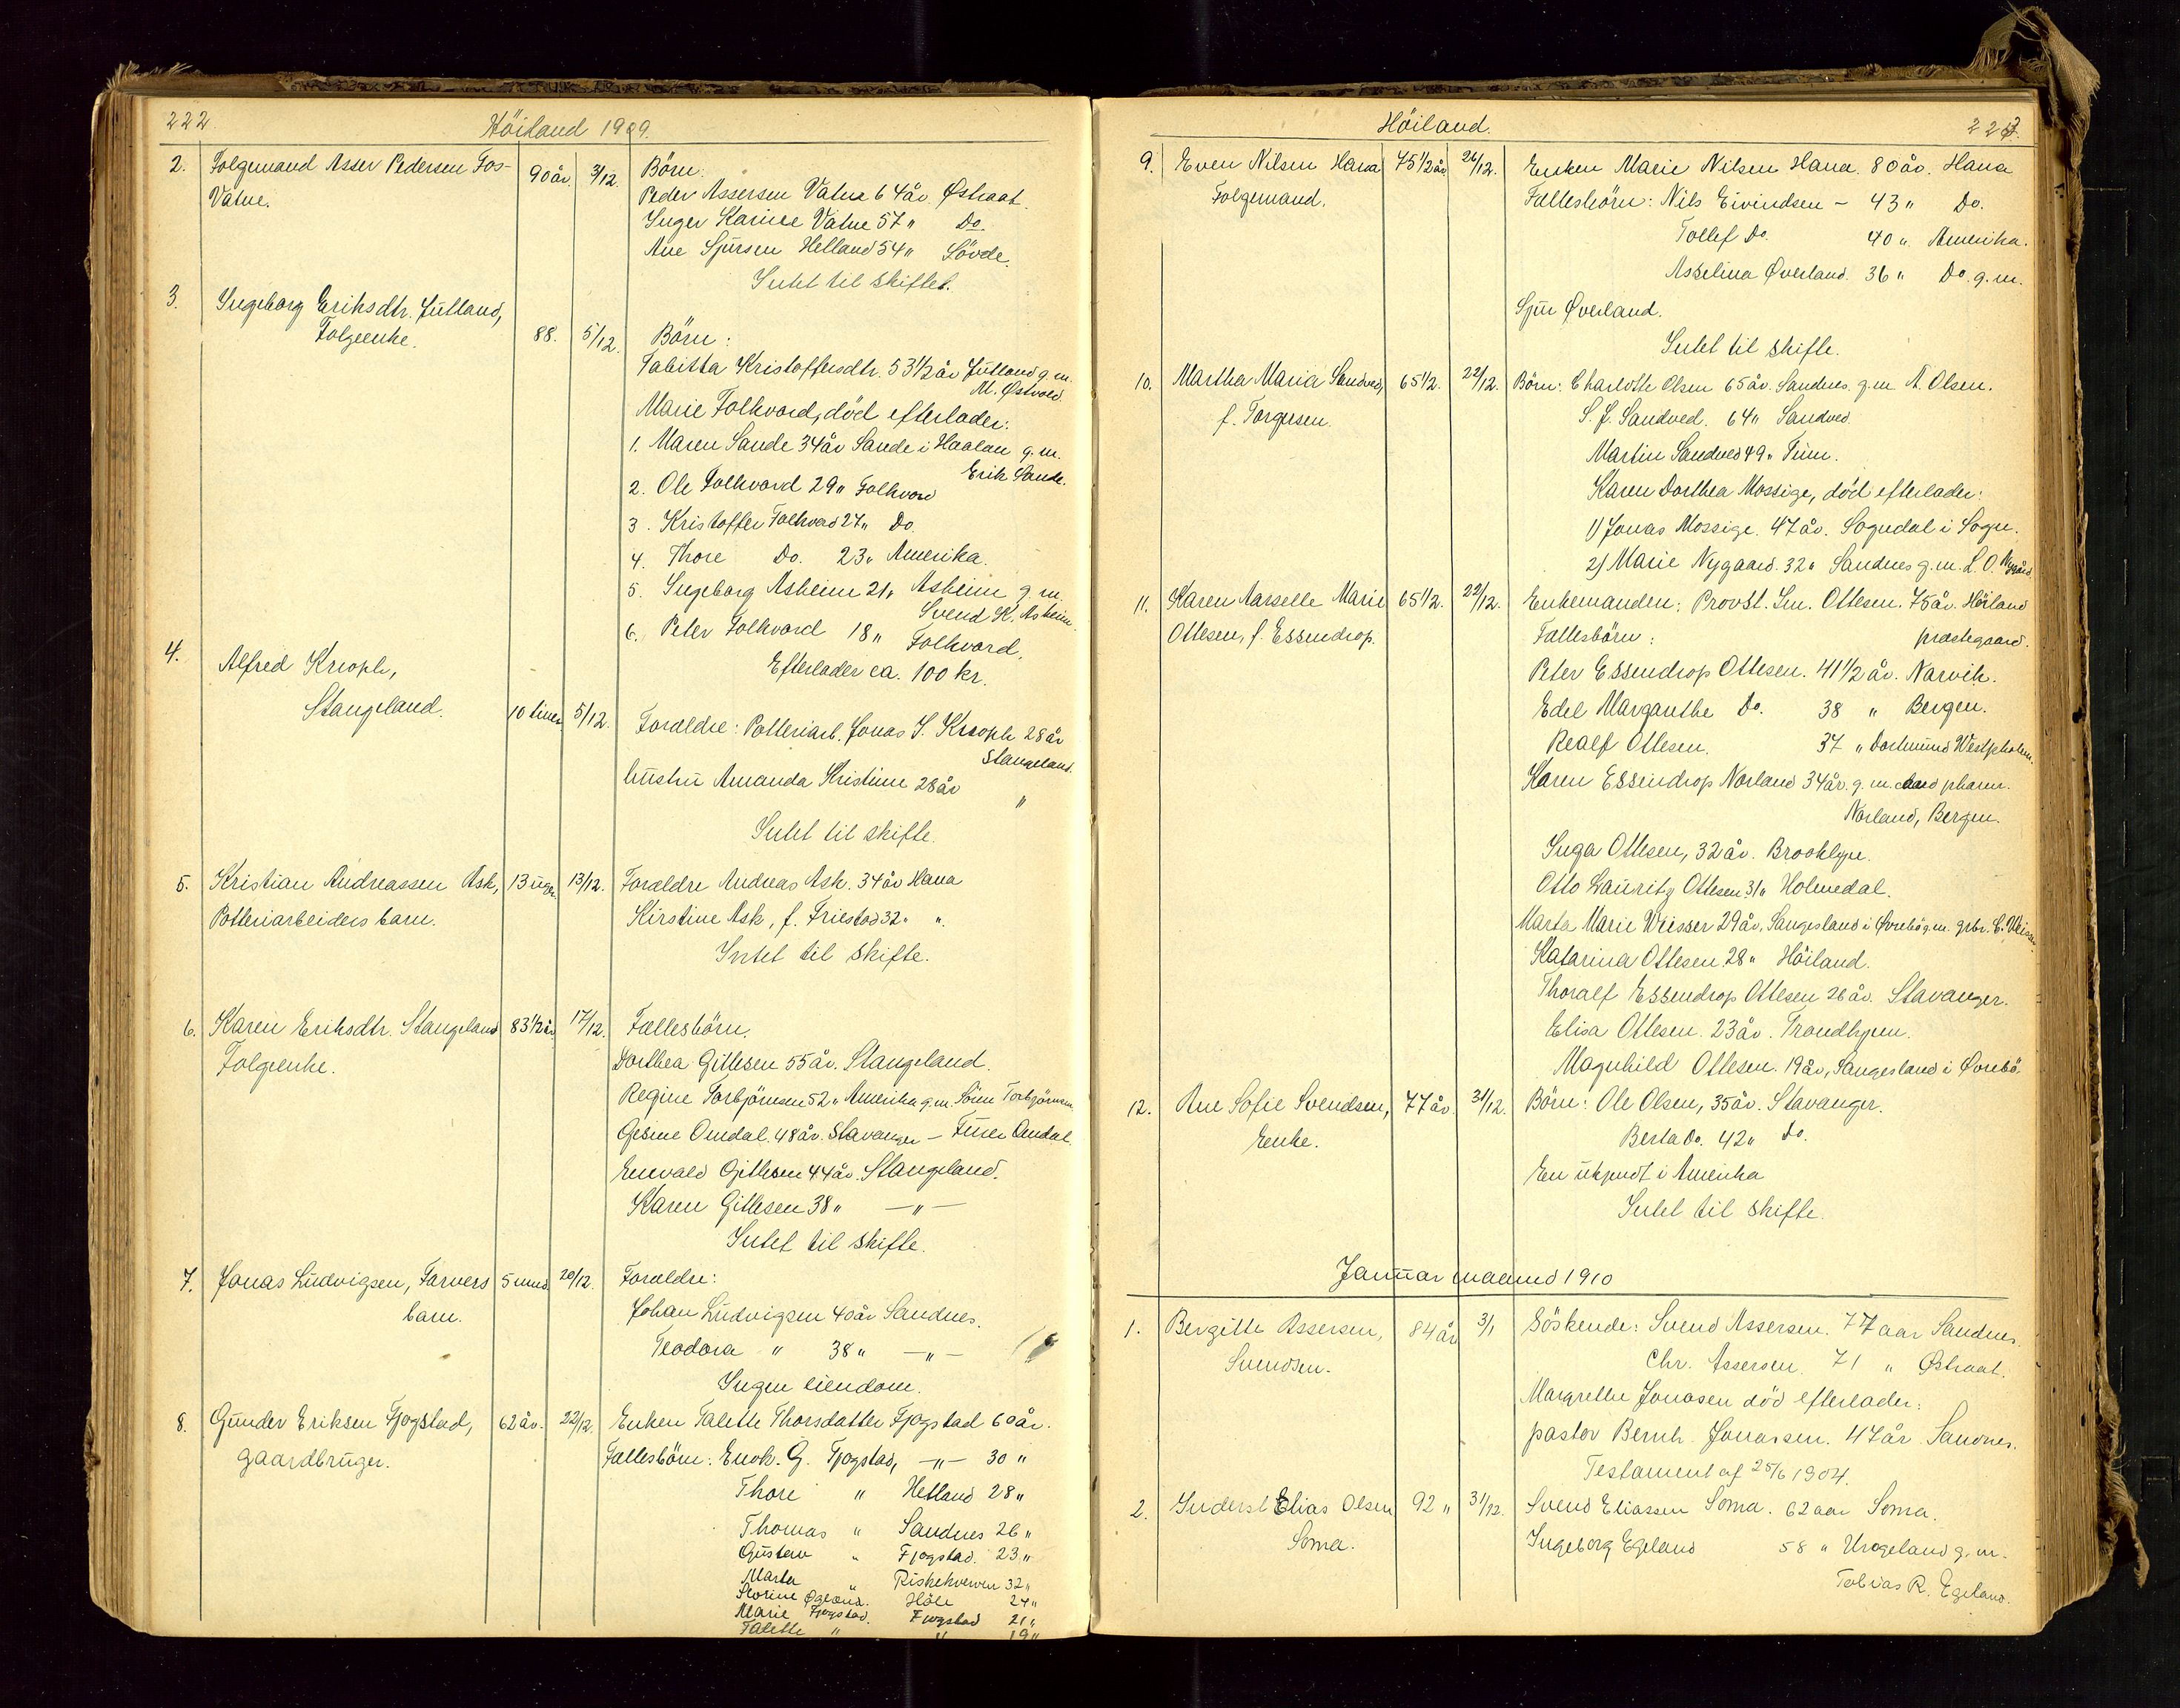 222.
Höiland 1909.
2. Folgemand Asser Pedersen Fos- 90 år. 3/12. Börn:
Vatne. Peder Assersen Vatne 64 år Østraat.
Inger Karine Vatne 57 " Do.
Ane Sjursen Helland 54 " Sövde.
Intet til skiftet.
3. Ingeborg Eriksdtr. Jutland,
Folgeenke. 88. 5/12. Börn:
Tabitta Kristoffersdtr. 53 1/2 år Jutland g. m.
M. Østvold.
Marie Folkvord, död efterlader:
1. Maren Sande 34 år Sande i Haaland g. m.
Erik Sande.
2. Ole Folkvord 29 " Folkvord
3. Kristoffer Folkvord 27 " Do.
4. Thore Do. 23 " Amerika.
5. Ingeborg Asheim 21 " Asheim g. m.
Svend K. Asheim.
6. Peter Folkvord 18 " Folkvord.
Efterlader ca. 100 kr.
4. Alfred Knoph,
Stangeland. 10 timer 5/12. Forældre: Potteriarb. Jonas S. Knoph 28 år
Stangeland.
hustru Amanda Kristine 28 år "
Intet til skifte.
5. Kristian Andreassen Ask, 13 uger 13/12. Forældre Andreas Ask. 34 år Hana
Potteriarbeiders barn. Kirstine Ask, f. Friestad 32 " "
Intet til skifte.
6. Karen Eriksdtr. Stangeland 83 1/2 år 17/12. Fællesbörn.
Folgeenke. Dorthea Gittesen 55 år. Stangeland.
Regine Torbjörnsen 52 " Amerika g. m. Sören Torbjörnsen
Gesine Omdal. 48 år. Stavanger – Omdal.
Enevald Gittesen 44 år. Stangeland.
Karen Gittesen 38 " — " —
Intet til skifte.
7. Jonas Ludvigsen, Farvers 5 mnd. 20/12. Forældre:
barn. Johan Ludvigsen 40 år Sandnes.
Teodora " 38 " — " —
Ingen eiendom.
8. Gunder Eriksen Fjogstad, 62 år. 22/12. Enken Talette Thorsdatter Fjogstad 60 år.
gaardbruger. Fællesbörn: Enok. G. Fjogstad, — " — 30 "
Thore " Hetland 28 "
Thomas " Sandnes 26 "
Gustav " Fjogstad. 23 "
Marta " Riskekverven 32 "
Storine Høle 24 "
Marie Fjogstad. Fjogstad 21 "
Talette " " 19 "
Höiland.
223.
9. Even Nilsen Hana 75 1/2 år 26/12. Enken Marie Nilsen Hana. 80 år. Hana
Folgemand. Fællesbörn: Nils Eivindsen – 43 " Do.
Tollef Do. 40 " Amerika.
Asselina Øverland. 36 " Do. g. m.
Sjur Øverland.
Intet til skifte.
10. Martha Maria Sandved, 65 1/2. 22/12. Börn: Charlotte Olsen 65 år. Sandnes. g. m. A. Olsen.
f. Torgersen. S. J. Sandved. 64 " Sandved.
Martin Sandved 49 " Time.
Karen Dorthea Mossige, död efterlader:
1) Jonas Mossige. 47 år. Sogndal i Sogn.
2) Marie Nygaard. 32 " Sandnes g. m. L. O. Nygård.
11. Karen Marselle Marie 65 1/2. 22/12. Enkemanden: Provst. Sm. Ottesen. 75 år. Höiland
Ottesen, f. Essendrop. Fællesbörn: præstegaard.
Peter Essendrop Ottesen. 41 1/2 år. Narvik.
Edel Margarethe Do. 38 " Bergen.
Realf Ottesen. 37 " Dortmund Westphalen.
Karen Essendrop Norland 34 år. g. m. cand pharm.
Norland, Bergen.
Inga Ottesen, 32 år. Brooklyn.
Otto Lauritz Ottesen 31 " Holmedal.
Marta Marie Weisser 29 år, Sangesland i Øvrebö g. m. grbr. C. Weisser
Katarina Ottesen 28 " Höiland.
Thoralf Essendrop Ottesen 26 år. Stavanger.
Elisa Ottesen. 23 år. Trondhjem.
Magnhild Ottesen. 19 år, Sangesland i Øvrebö.
12. Ane Sofie Svendsen, 77 år. 31/12. Börn: Ole Olsen, 35 år. Stavanger.
Enke. Berta Do. 42 " Do.
En ukjendt i Amerika
Intet til skifte.
Januar maaned 1910
1. Bergitte Assersen, 84 år 3/1 Söskende: Svend Assersen. 77 aar Sandnes.
Svendsen. Chr. Assersen. 71 " Østraat.
Margrethe Jonasen död efterlader:
pastor Bernh. Jonassen. 47 år Sandnes.
Testament af 25/6 1904.
2. Inderst Elias Olsen 92 " 31/12. Svend Eliassen Soma. 62 aar Soma.
Soma. Ingeborg Egeland 58 " g. m.
Tobias R. Egeland.